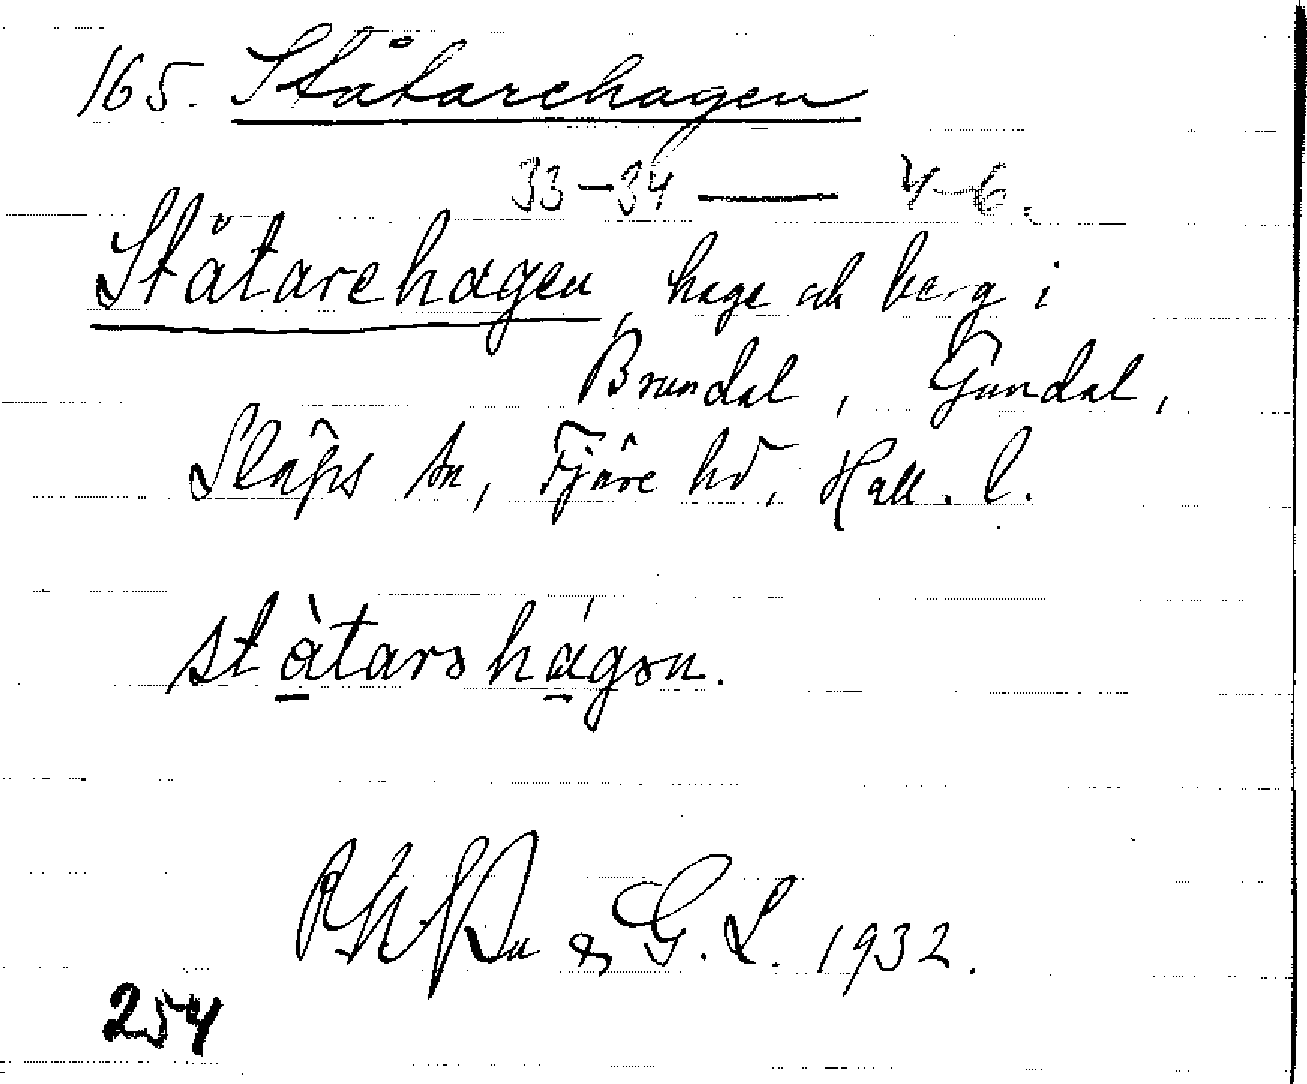 165. Ståtarehagen
33–34 — 4–6.
Ståtarehagen, hage och berg i
Brundal, Gundal,
Släps sn, Fjäre hd, Hall. l.
G. L. 1932.
254